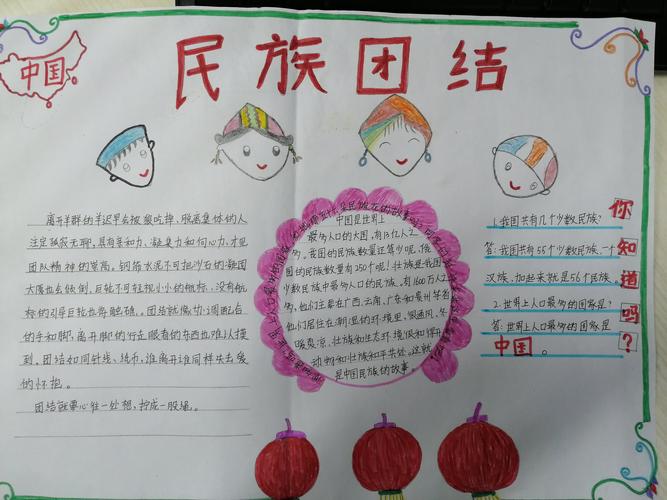 民族团结
中国
离开羊群的羊迟早会被狼吃掉,脱离集体的人
注定孤寂无聊,具有亲和力、凝聚力和向心力,才见
团队精神的崇高。钢筋水泥不可把沙石的凝固
大厦也会倾倒,巨轮不可轻视小小的航标,没有航
标的引导巨轮也会触礁。团结就像协调配合
的手和脚,离开脚的行走眼看的东西也难以摸
到。团结如同针线、纸币,谁离开谁同样失去爱
的怀抱。
团结就要心往一处想,拧成一股绳。
中国是世界上
最多人口的大国,有13亿人之
多,我国的民族数量还算少呢,俄
国的民族数量有250个呢!壮族是我国
少数民族中最多人口的民族,有1600万人之
多,他们主要在广西、云南、广东和贵州等省
他们居住在潮湿的环境里,很通风,冬
暖夏凉,壮族和生态环境
动物和壮族和平共处。这就
是中国民族的故事。
你知道吗?
1.我国共有几个少数民族?
答:我国共有55个少数民族,一个
汉族,加起来就是56个民族。
2.世界上人口最多的国家是?
答:世界上人口最多的国家是
中国。